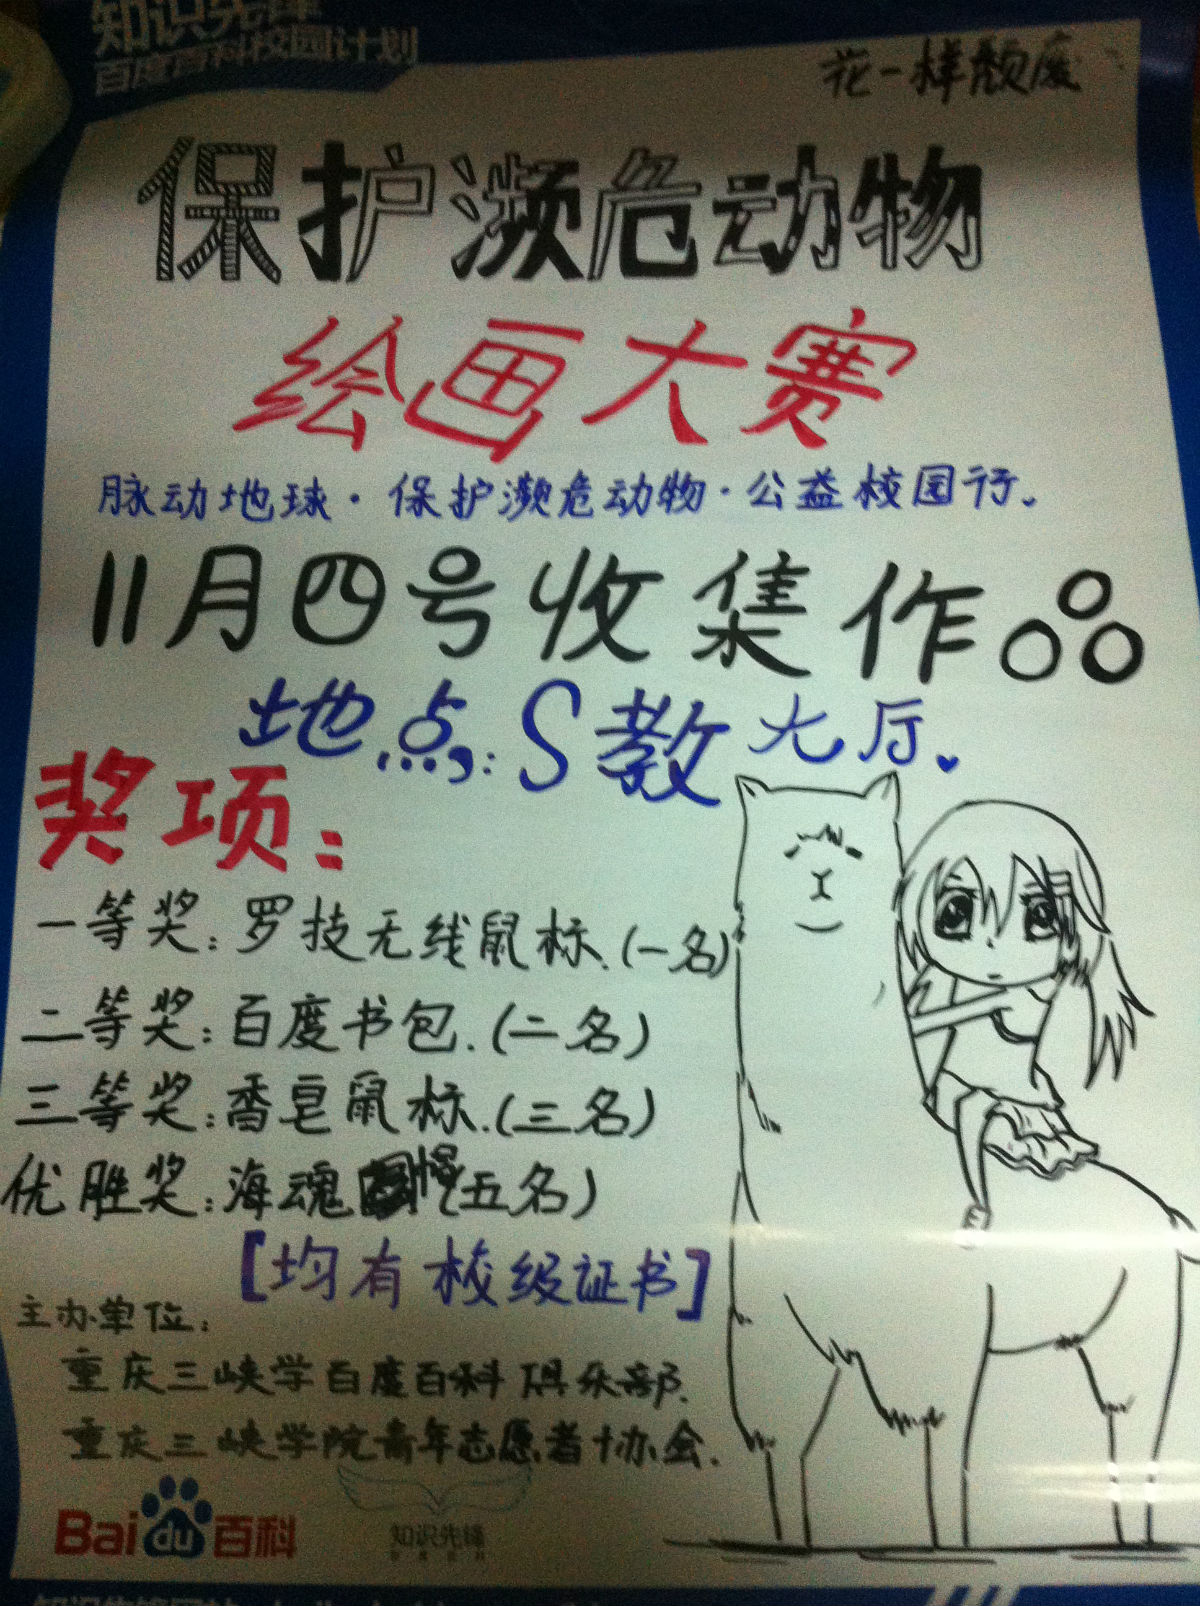 知识先锋
百度百科校园计划
花一样颓废
保护濒危动物
绘画大赛
脉动地球·保护濒危动物·公益校园行。
11月四号收集作品
地点:S教大厅。
奖项:
一等奖:罗技无线鼠标.(一名)
二等奖:百度书包.(二名)
三等奖:香皂鼠标.(三名)
优胜奖:海魂帽(五名)
[均有校级证书]
主办单位:
重庆三峡学百度百科俱乐部.
重庆三峡学院青年志愿者协会.
Baidu百科
知识先锋